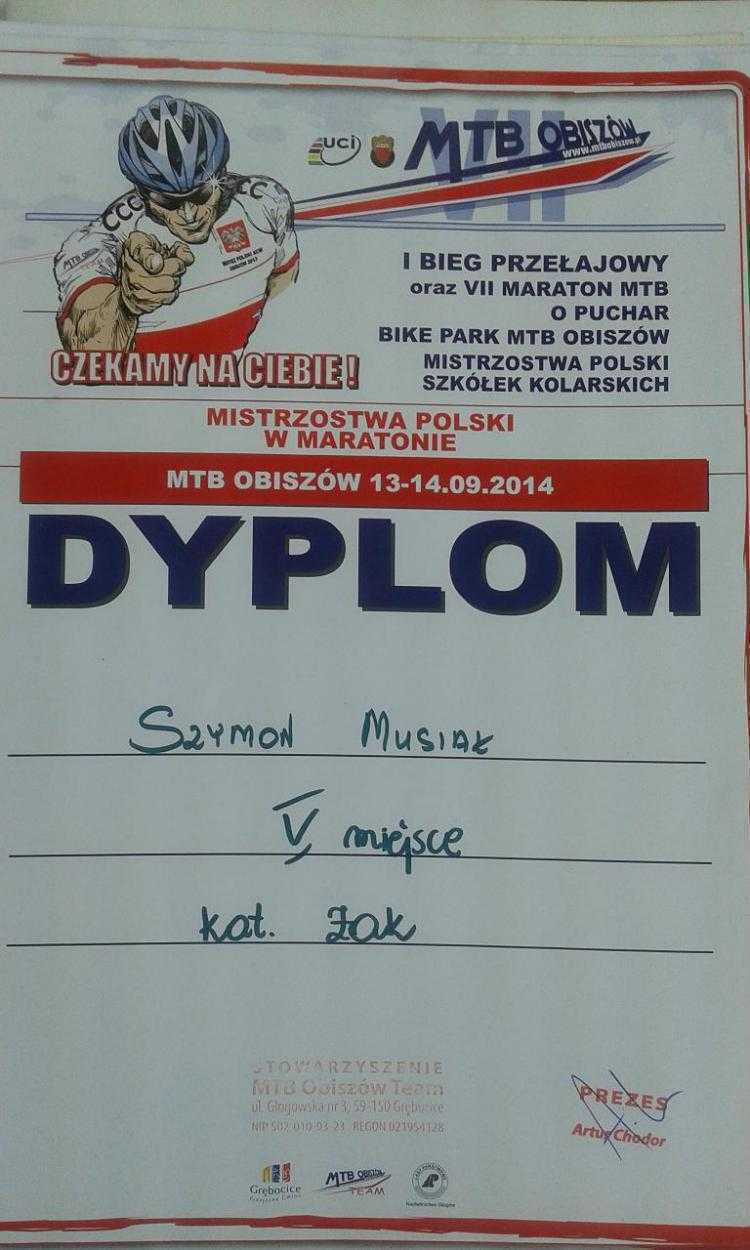 UCI
VII
MTB OBISZÓW
www.mtbobiszow.pl
CCC
CC
MTB OBISZÓW
I BIEG PRZEŁAJOWY
oraz VII MARATON MTB
O PUCHAR
BIKE PARK MTB OBISZÓW
MISTRZOSTWA POLSKI
SZKÓŁEK KOLARSKICH
CZEKAMY NA CIEBIE!
MISTRZOSTWA POLSKI
W MARATONIE
MTB OBISZÓW 13-14.09.2014
DYPLOM
SZYMON MUSIAŁ
V miejsce
kat. Żak
STOWARZYSZENIE
MTB Obiszów Team
ul. Głogowska nr 3, 59-150 Grębocice
NIP 502-010-93-23 REGON 021954128
PREZES
Artur Chodor
Grębocice
MTB OBISZÓW
TEAM
Nadleśnictwo Głogów